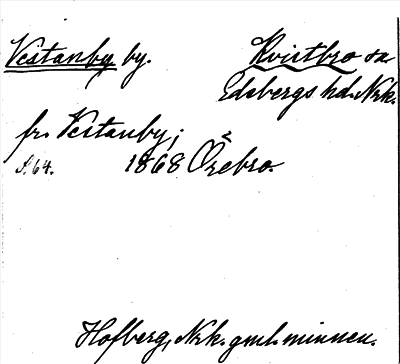 Vestanby by. Kvistbro sn
Edsbergs hd. Nrk.
fr. Vestanby;
S. 64. 1868 Örebro.
Hofberg, Nrk. gml. minnen.